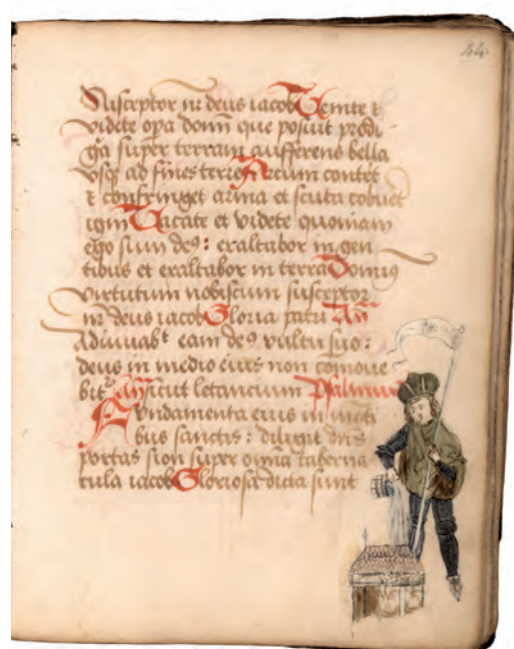 44
Susceptor nr deus iacob Venite ⁊
videte opa domi que posuit prodi
gia super terram aufferens bella
vsqȝ ad fines terre Arcum contet
⁊ confringet arma et scuta cobuet
igni Vacate et videte quoniam
ego sum deꝰ : exaltabor in gen
tibus et exaltabor in terra Dominꝰ
virtutum nobiscum susceptor
nr deus iacob Gloria patri An
Adiuuabt eam deꝰ vultu suo :
deus in medio eius non comoue
bit᷑ An sicut letancium Psalmus
Fundamenta eius in monti
bus sanctis : diligit dns
portas sion super omia taberna
cula iacob Gloriosa dicta sunt